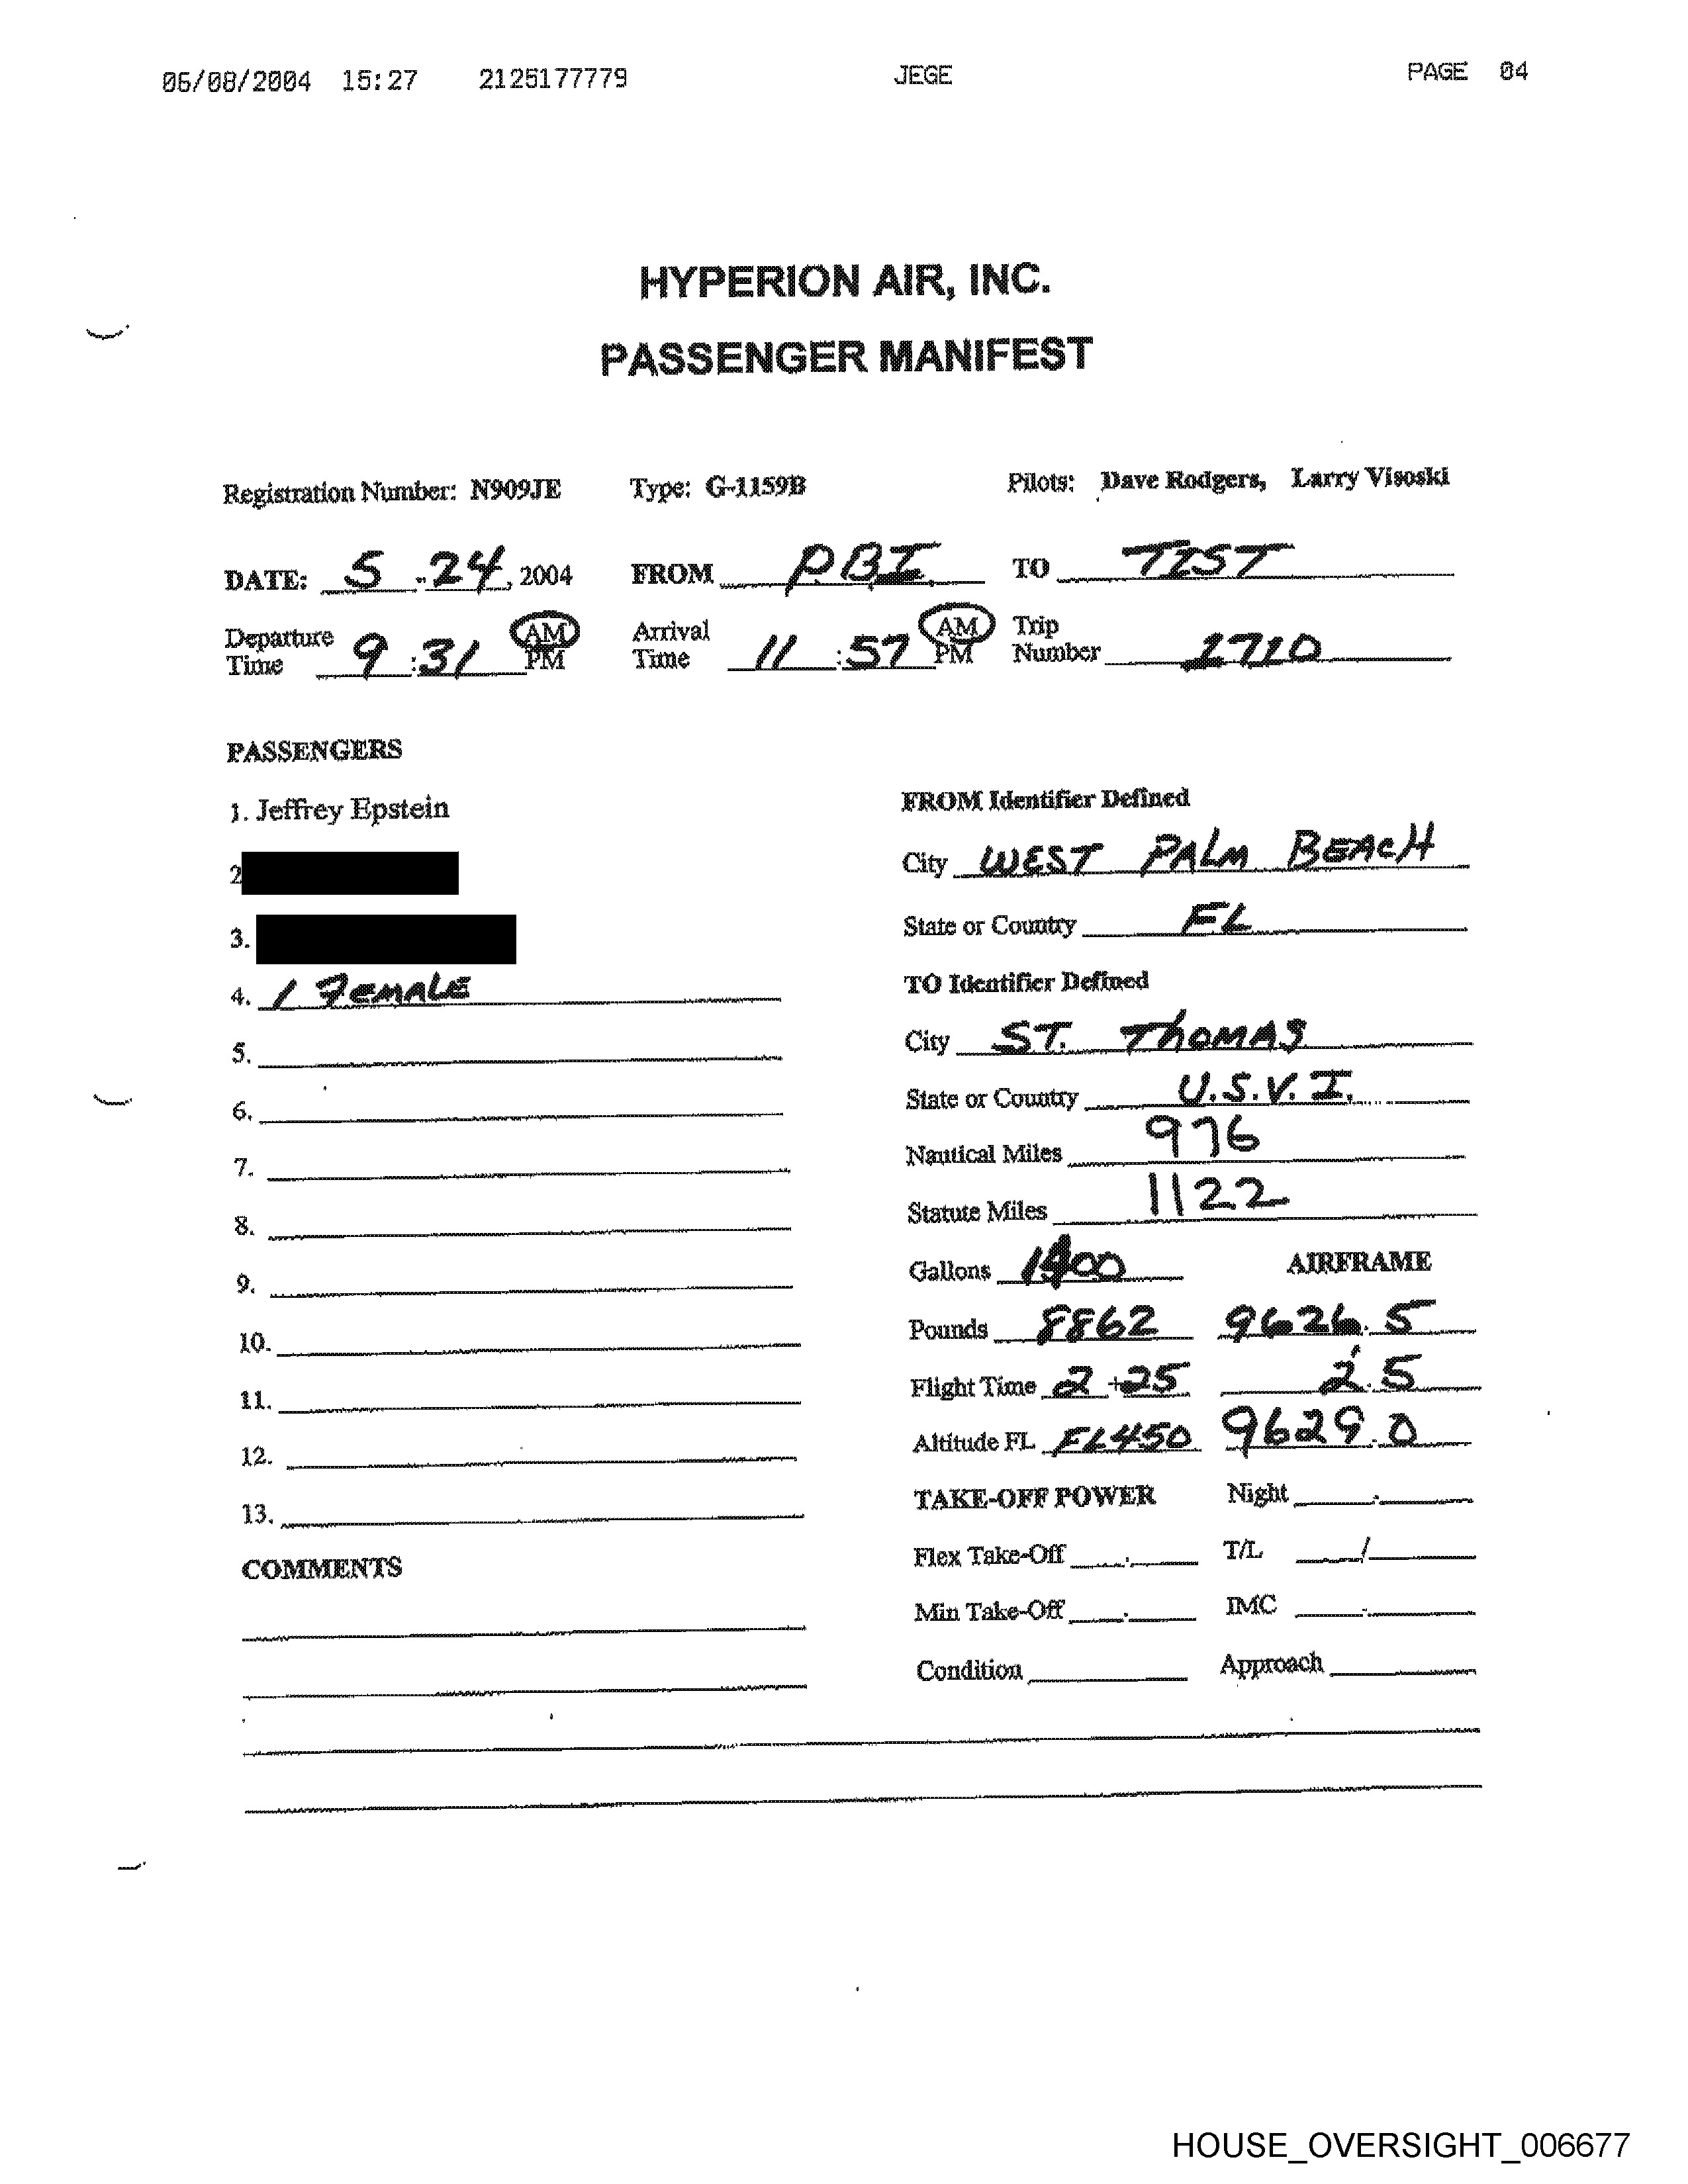 06/08/2004 15:27 2125177779 JEGE PAGE 04
HYPERION AIR, INC.
PASSENGER MANIFEST
Registration Number: N909JE Type: G-1159B Pilots: Dave Rodgers, Larry Visoski
DATE: 5-24, 2004 FROM PBI TO TIST
Departure Time 9:31 AM PM Arrival Time 11:57 AM PM Trip Number 1710
PASSENGERS
1. Jeffrey Epstein
2
3.
4. 1 FEMALE
5.
6.
7.
8.
9.
10.
11.
12.
13.
COMMENTS
FROM Identifier Defined
City WEST PALM BEACH
State or Country FL
TO Identifier Defined
City ST. THOMAS
State or Country U.S.V.I.
Nautical Miles 976
Statute Miles 1122
Gallons AIRFRAME
Pounds 8862 9626.5
Flight Time 2+25 2.5
Altitude FL FL450 9629.0
TAKE-OFF POWER Night
Flex Take-Off T/L /
Min Take-Off IMC
Condition Approach
HOUSE_OVERSIGHT_006677